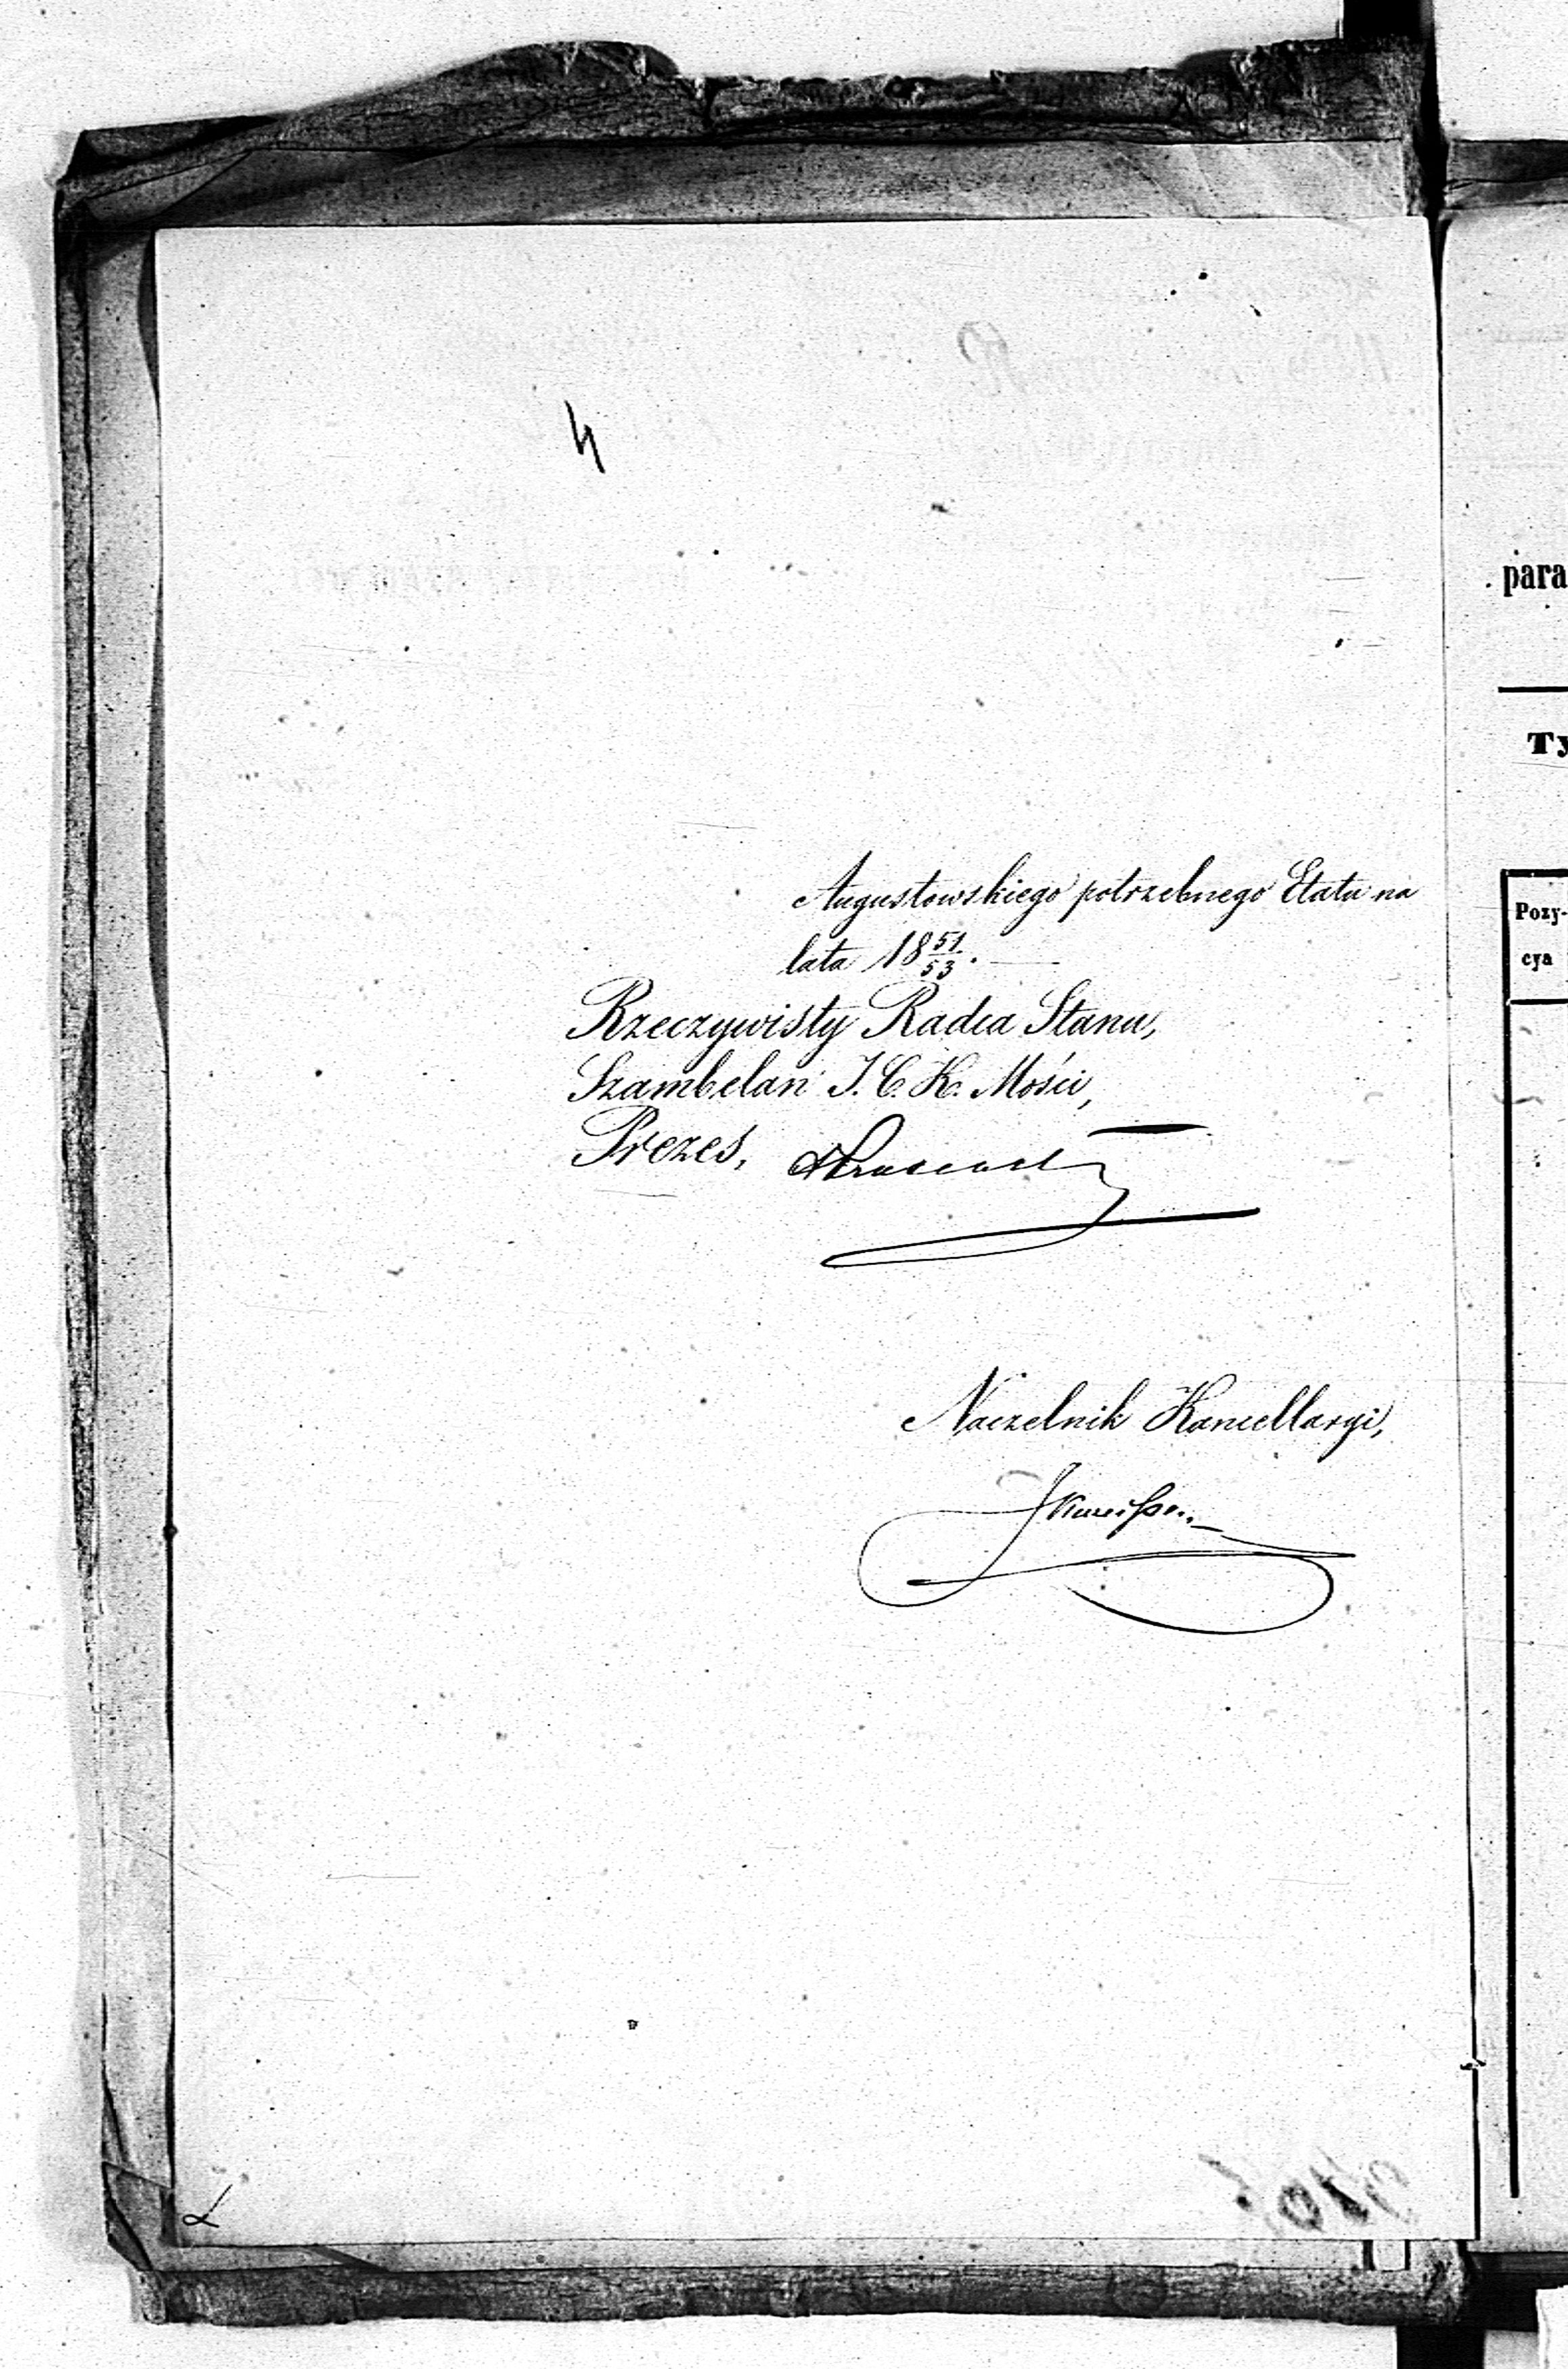 4
Augustowskiego potrzebnego Etatu na
lata 18 51/53.
Rzeczywisty Radca Stanu,
Szambelan J. C. K. Mości,
Prezes,
Naczelnik Kancellaryi,
para
Ty
Pozy-
cya